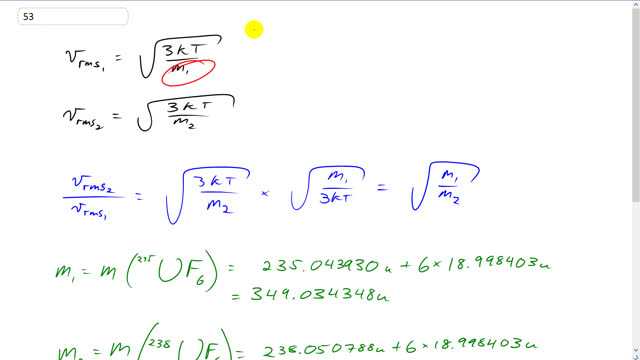 53
v_rms₁ = √(3kT/m₁)
v_rms₂ = √(3kT/m₂)
v_rms₂/v_rms₁ = √(3kT/m₂) × √(m₁/3kT) = √(m₁/m₂)
m₁ = m(²³⁵UF₆) = 235.043930u + 6×18.998403u
= 349.034348u
m₂ = m(²³⁸UF₆) = 238.050788u + 6×18.998403u